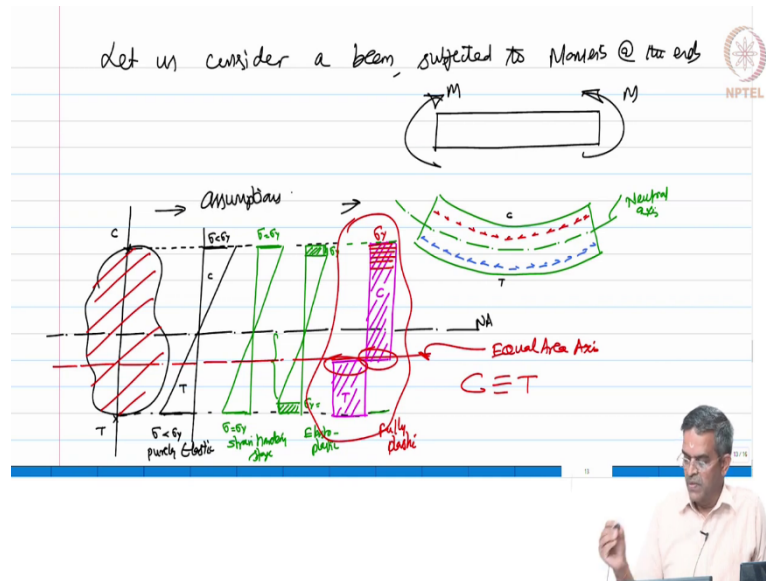 Let us consider a beam, subjected to Moments @ the ends
NPTEL
M
M
→ assumptions →
Neutral axis
C
T
C
σ<σy
σ=σy
σy
σy
C
C
NA
Equal Area Axis
C≡T
T
T
T
σ<σy
σ=σy
σy
purely Elastic
strain hardening stage
Elasto-plastic
fully plastic
15